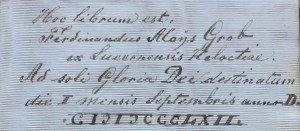 Hoc librum est.
Ferdinandus Aloÿs Grob
ex Lucernensis Helvetiae.
Ad soli Gloria Dei destinatum
die I mensis Septembris anno D:
CIƆIƆCCCLXII.